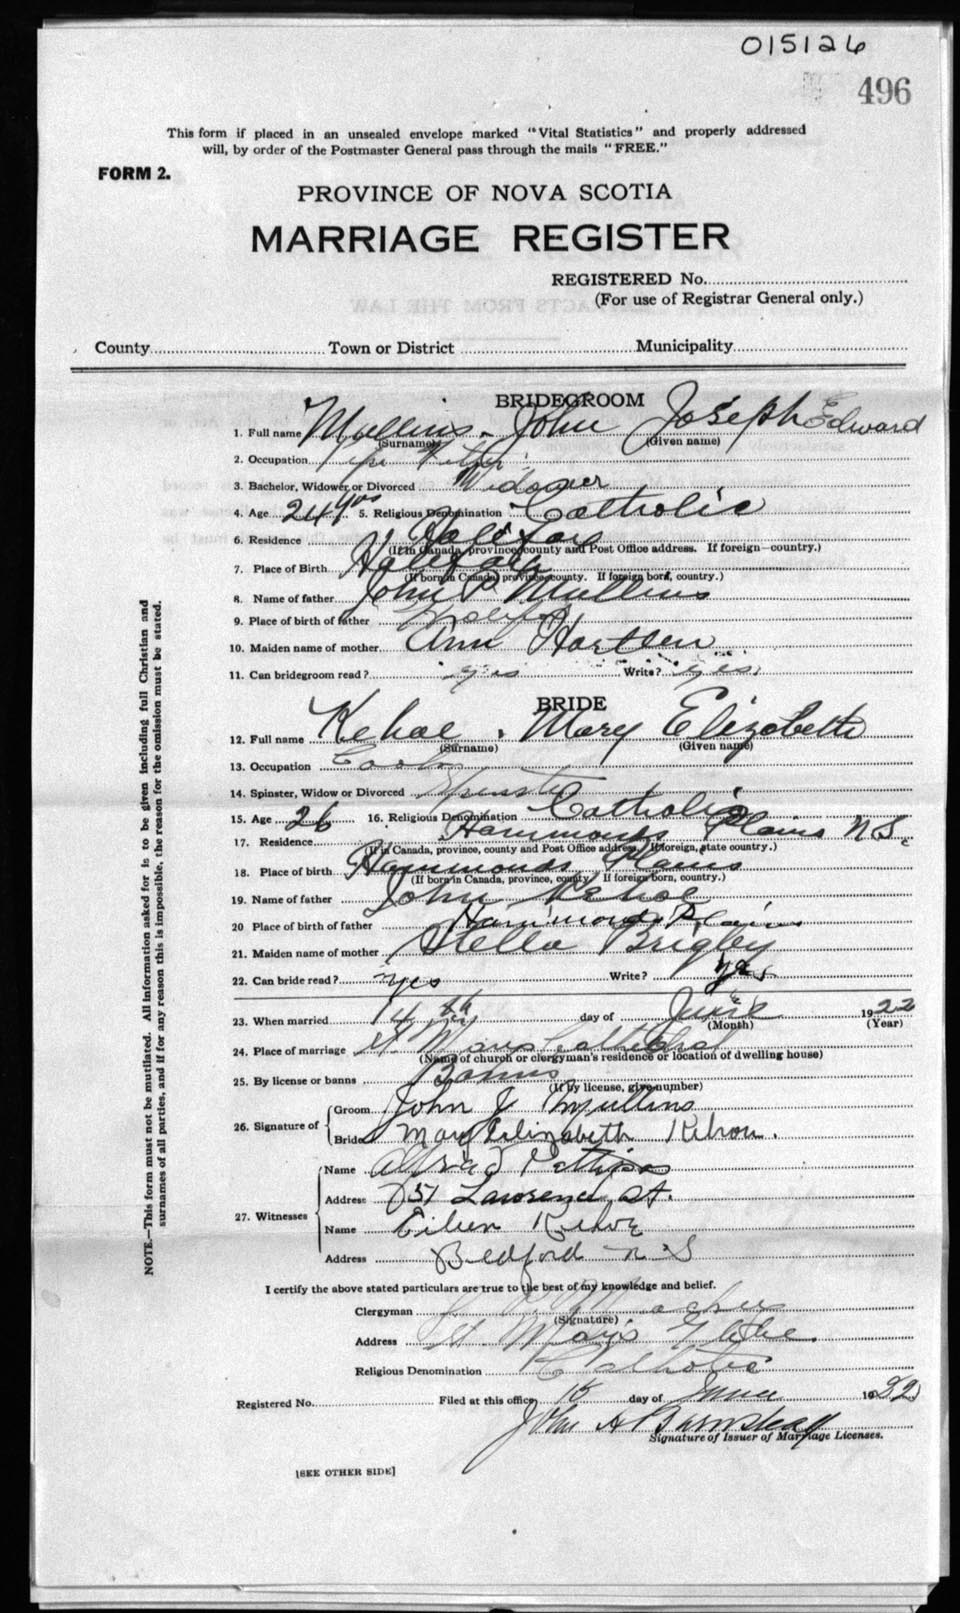 015126
496
This form if placed in an unsealed envelope marked "Vital Statistics" and properly addressed
will, by order of the Postmaster General pass through the mails "FREE."
FORM 2.
PROVINCE OF NOVA SCOTIA
MARRIAGE REGISTER
REGISTERED No.
(For use of Registrar General only.)
County Town or District Municipality
BRIDEGROOM
1. Full name Mullins - John Joseph Edward
(Surname) (Given name)
2. Occupation Pipe Fitter
3. Bachelor, Widower or Divorced Widower
4. Age 24 yrs 5. Religious Denomination Catholic
6. Residence Halifax
(If in Canada, province, county and Post Office address. If foreign—country.)
7. Place of Birth Halifax
(If born in Canada, province, county. If foreign born, country.)
8. Name of father John P. Mullins
9. Place of birth of father Halifax
10. Maiden name of mother Ann Hartlen
11. Can bridegroom read? yes Write? yes
BRIDE
12. Full name Kehoe - Mary Elizabeth
(Surname) (Given name)
13. Occupation
14. Spinster, Widow or Divorced Spinster
15. Age 26 16. Religious Denomination Catholic
17. Residence Hammonds Plains N.S.
(If in Canada, province, county and Post Office address. If foreign, state country.)
18. Place of birth Hammonds Plains
(If born in Canada, province, county. If foreign born, country.)
19. Name of father John Kehoe
20 Place of birth of father Hammonds Plains
21. Maiden name of mother Stella Brigley
22. Can bride read? yes Write? yes
23. When married 14th day of June 1922
(Month) (Year)
24. Place of marriage St. Marys Cathedral
(Name of church or clergyman's residence or location of dwelling house)
25. By license or banns Banns
(If by license, give number)
26. Signature of Groom John J Mullins
Bride Mary Elizabeth Kehoe.
27. Witnesses
Name Alfred
Address 51 Lawrence St.
Name Eileen Kehoe
Address Bedford N S
I certify the above stated particulars are true to the best of my knowledge and belief.
Clergyman
(Signature)
Address St. Mary's Glebe
Religious Denomination Catholic
Registered No. Filed at this office 15 day of June 1922
John A Barnstead
Signature of Issuer of Marriage Licenses.
[SEE OTHER SIDE]
NOTE.—This form must not be mutilated. All information asked for is to be given including full Christian and
surnames of all parties, and if for any reason this is impossible, the reason for the omission must be stated.